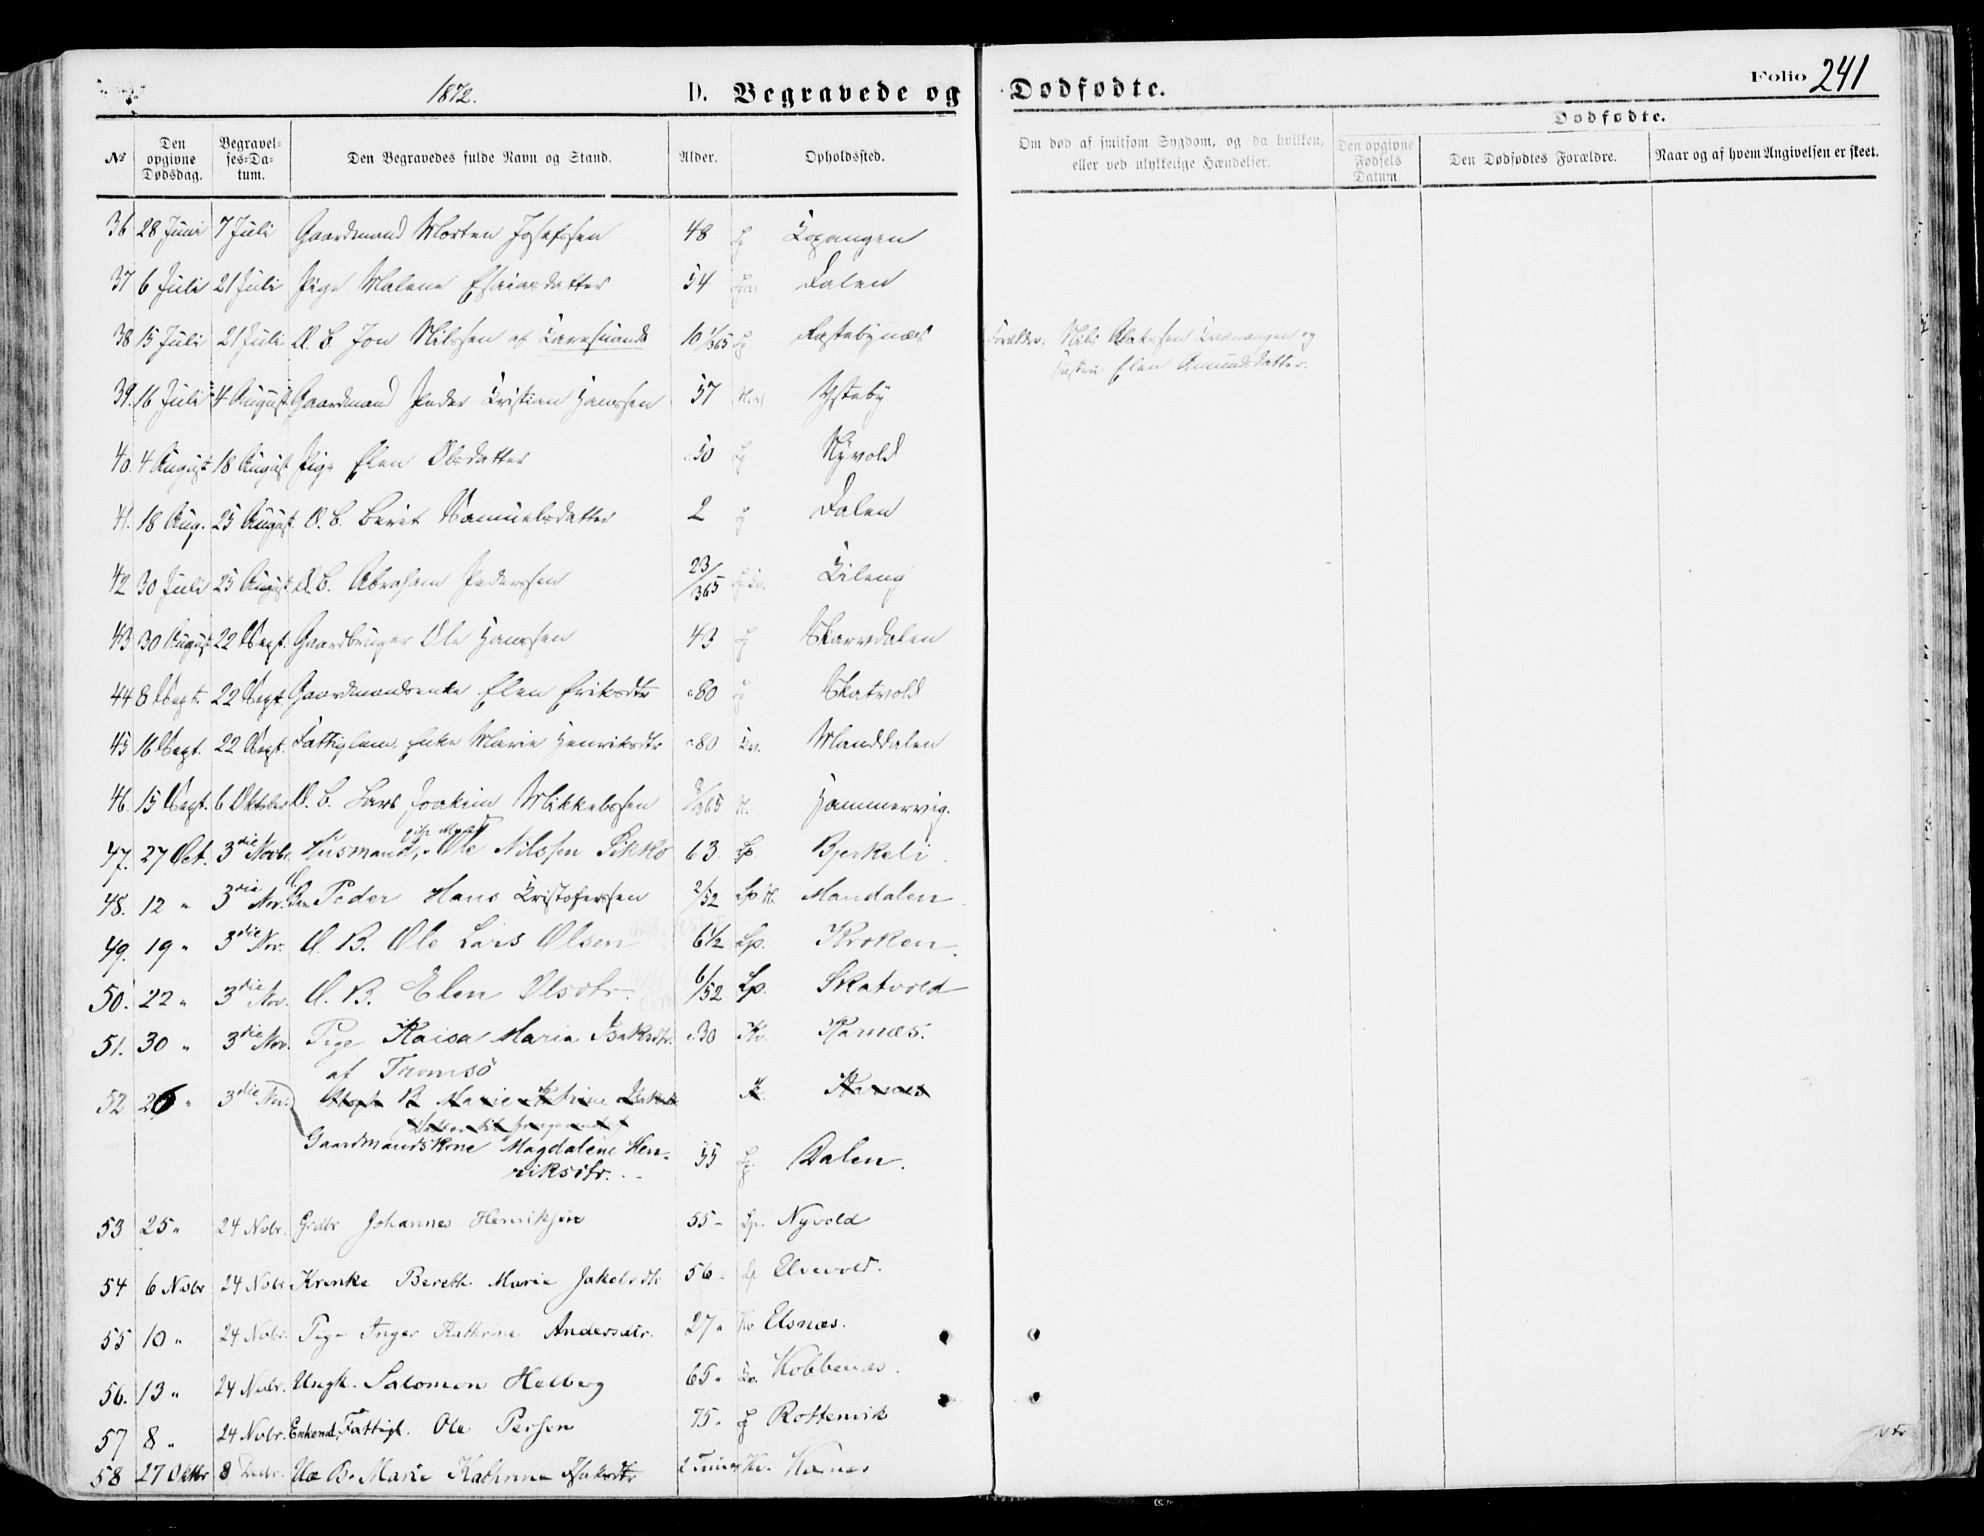 1872.
D. Begravede og Dødfødte.
Folio 241
Dødfødte.
№ Den opgivne Dødsdag. Begravelses-Datum. Den Begravedes fulde Navn og Stand. Alder. Opholdssted. Om død af smitsom Sygdom, og da hvilken, eller ved ulykkelige Hændelser. Den opgivne Fødsels Datum Den Dødfødtes Forældre. Naar og af hvem Angivelsen er skeet.
36 28 Juni 7 Juli Gaardmand Morten Josefsen 48 Lp Kopangen
37 6 Juli 21 Juli Pige Malene Esaiasdatter 54 Dalen
38 15 Juli 21 Juli U. B. Jon Nilssen af Karesuando 10 1/365 Lp Rastebynæs Forældre: Nils Kvænangen og
Hustru Elen Amundsdatter.
39. 16 Juli 4 August Gaardmand Peder Kristian Hanssen 57 Ysteby
40. 4 August 18 August Pige Elen Olsdatter 50 Lp Nyvold
41. 18 Aug. 25 August. U. B. Berit Samuelsdatter 2 Lp Dalen
42 30 Juli 25 August U. B. Abraham Pederssen 23/365 Kileng
43 30 August 22 Sept. Gaardbruger Ole Hanssen 43 Lp Skarvdalen
44 8 Sept. 22 Sept. Gaardmandsenke Elen Eriksdtr 80 Lp Skatvold
45 16 Sept. 22 Sept. Fattiglem, Enke Marie Henriksdtr 80 Kv. Manddalen
46. 15 Sept. 6 Oktober U. B. Lars Joakim Mikkelssen 8/365 N. Hammervig.
47. 27 Oct. 3die Novbr. Husmand, Ole Nilssen Sikko 63 Lp. Bjerkeli.
48. 12 " 3die Nov. Peder Hans Kristoferssen 2/52 Lp. N. Mandalen
49. 19 " 3die Nov. U. B. Ole Lars Olsen 6 1/2 Lp. Kroken.
50. 22 " 3die Nov. U. B. Elen Olsdtr. 6/52 Lp. Skatvold
51. 30 " 3die Nov. Pige Kaisa Maria Isaksdtr. 30 Kv. Kanæs.
af Tromsö
52 26 " 3die Nov. B. Marie Katrine Isaksdtr K. Kanæs
Gaardmandskone Magdalene Hen-
riksdtr. 55 Lp. Dalen.
53 25 " 24 Nobr. Grdbr Johannes Henriksen 55 - Lp. Nyvold
54 6 Nobr 24 Nobr Kvinke Bereth Marie Jakobsdtr 56 - Lp Elvevold.
55 10 " 24 Nobr. Pige Inger Kathrine Andersdtr. 27 " Kv Elsnæs.
56. 13 " 24 Nobr. Ungk. Salomon Helberg 65 " Kv. Kobbenæs.
57 8 " 24 Nobr. Enkemd. Fattigl. Ole Persen 75 " Lp Rottenvik
58 27 Oktbr 8 Decbr. Uæ B. Marie Kathrine Isaksdtr 2 Timer Kv. Kanæs